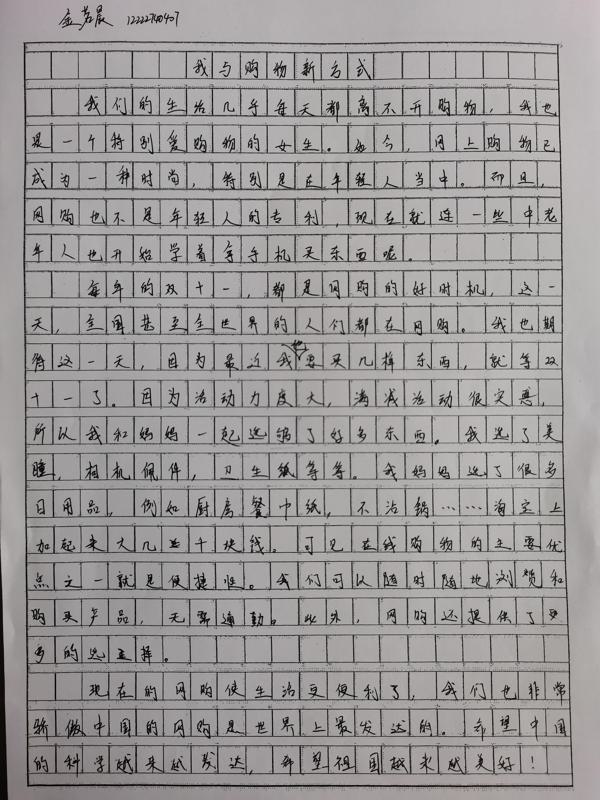 金若晨 12222740407
我与购物新方式
我们的生活几乎每天都离不开购物，我也
是一个特别爱购物的女生。如今，网上购物已
成为一种时尚，特别是在年轻人当中。而且，
网购也不是年轻人的专利，现在就连一些中老
年人也开始学着拿手机买东西呢。
每年的双十一，都是网购的好时机，这一
天，全国甚至全世界的人们都在网购。我也期
待这一天，因为最近我也要买几样东西，就等双
十一了。因为活动力度大，满减活动很实惠，
所以我和妈妈一起选购了好多东西。我选了美
瞳，相机佩件，卫生纸等等。我妈妈选了很多
日用品，例如厨房餐巾纸，不沾锅……淘宝上
加起来大几千块钱。可见在线购物的主要优
点之一就是便捷性。我们可以随时随地浏览和
购买产品，无需通勤。此外，网购还提供了更
多的选择。
现在的网购使生活变便利了，我们也非常
骄傲中国的网购是世界上最发达的。希望中国
的科学越来越发达，希望祖国越来越美好！